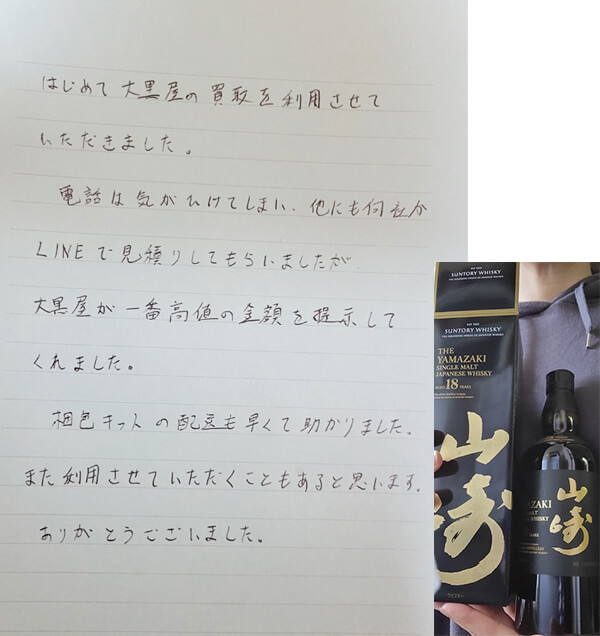 はじめて大黒屋の買取を利用させて
いただきました。
電話は気がひけてしまい、他にも何社か
LINEで見積りしてもらいましたが
大黒屋が一番高値の金額を提示して
くれました。
梱包キットの配送も早くて助かりました。
また利用させていただくこともあると思います。
ありがとうございました。
SUNTORY WHISKY
SUNTORY WHISKY
THE
YAMAZAKI
SINGLE MALT
JAPANESE WHISKY
AGED 18 YEARS
山崎
ウイスキー
YAMAZAKI
MALT
WHISKY
山崎